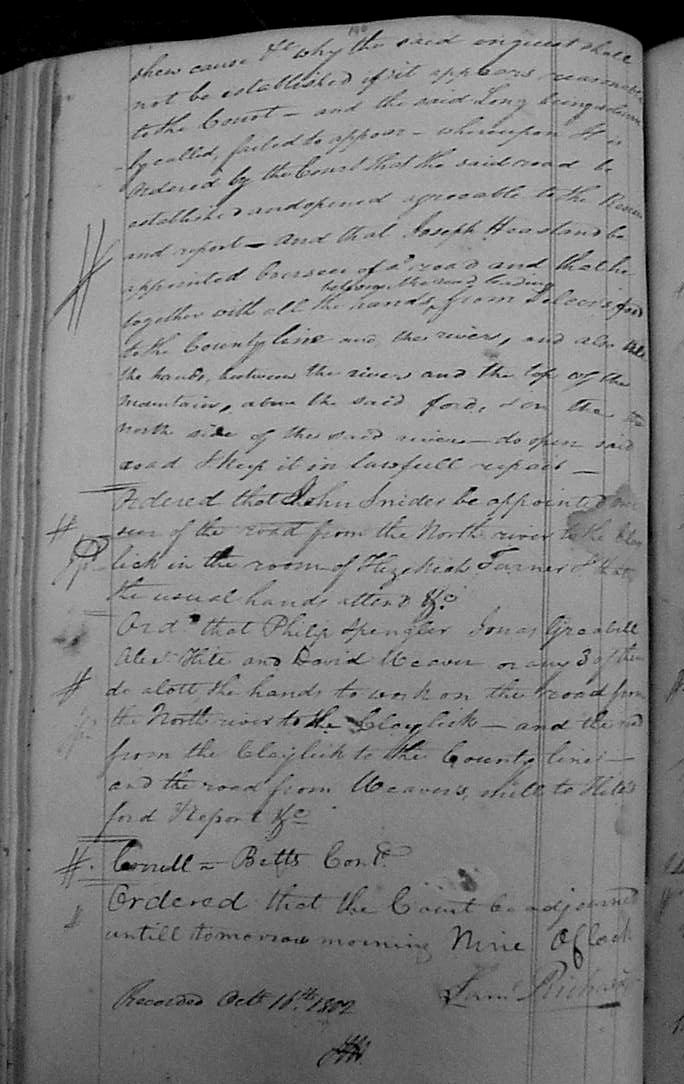 shew cause &c why the said inquest shall
not be established if it appears reasonable
to the Court — and the said Long being solemn
ly called, failed to appear — whereupon It is
Ordered by the Court that the said road be
established and opened agreeable to the
and report — And that Joseph Heastand be
appointed Overseer of sd. road and that he
belowing the road leading
together with all the hands from ford
to the County line and the rivers, and also all
the hands, between the river and the top of the
mountain, above the said ford, & on the
north side of the said river — do open said
road & keep it in lawfull repair —
Ordered that John Snider be appointed over
seer of the road from the North river to the Clay
lick in the room of Hezekiah Turner & that
the usual hands attend &c.
Ord. that Philip Spengler Jonas Greabill
Alexr. Hite and David Weaver or any 3 of them
do alott the hands to work on the road from
the North river to the Claylick — and the road
from the Claylick to the County line —
and the road from Weavers mill to Hite's
ford & Report &c
vs Betts Cont.
Ordered that the Court be adjourned
untill tomorrow morning Nine OClock
Recorded Octr. 16th. 1802